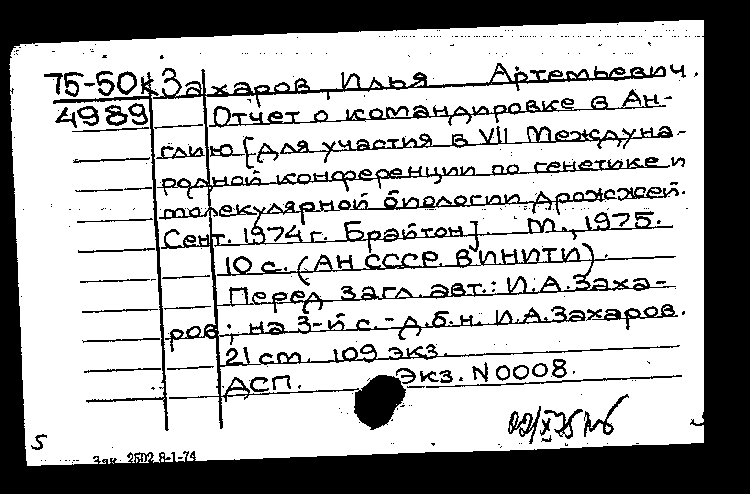 75-50к Захаров, Илья Артемьевич.
4989 Отчет о командировке в Ан-
глию [для участия в VII Междуна-
родной конференции по генетике и
молекулярной биологии дрожжей.
Сент. 1974 г. Брайтон] М., 1975.
10 с. (АН СССР. ВИНИТИ).
Перед загл. авт.: И.А.Заха-
ров; на 3-й с. - д.б.н. И.А.Захаров.
21 ст. 109 экз.
ДСП. Экз. N 0008.
5
Зак. 2502 8-1-74